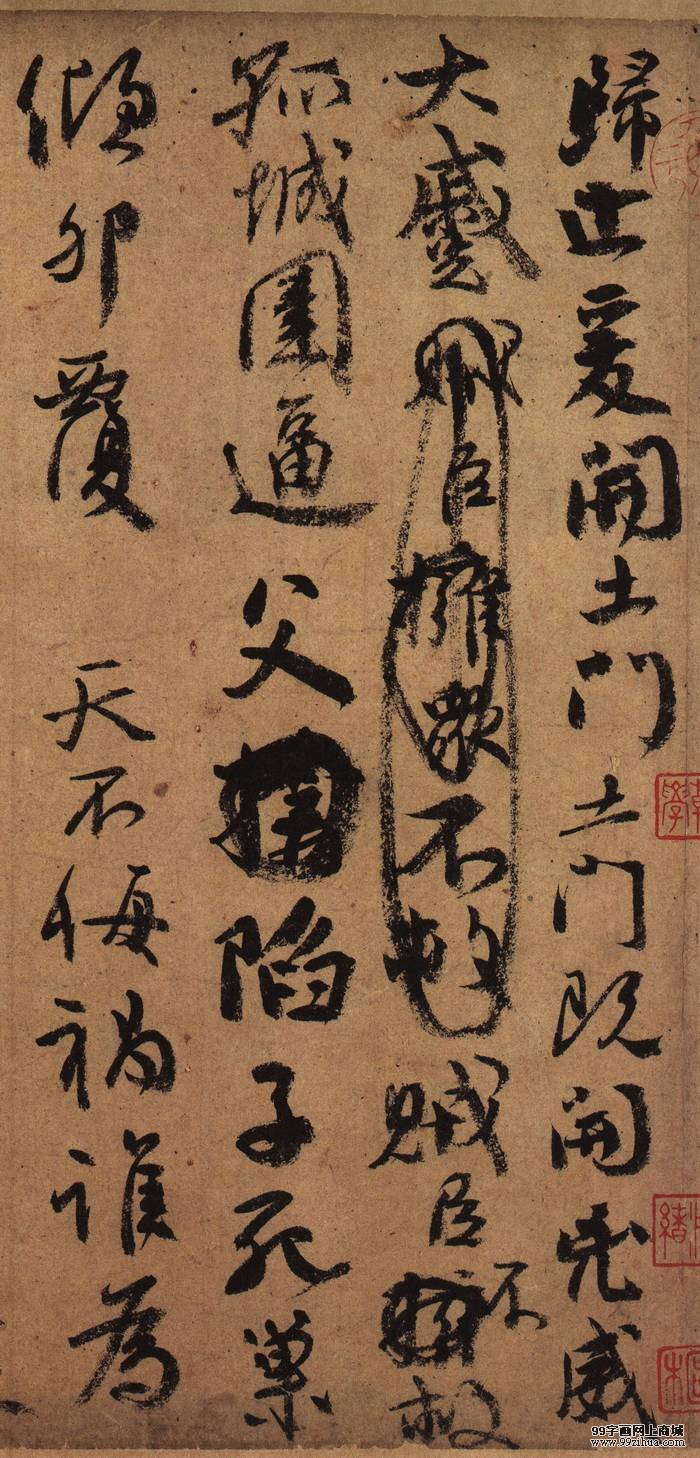 歸止爰開土門土門既開凶威
大蹙賊臣擁衆不救賊臣不救
孤城圍逼父陷子死巢
傾卵覆 天不悔禍誰為
99字画网上商城
www.99zihua.com